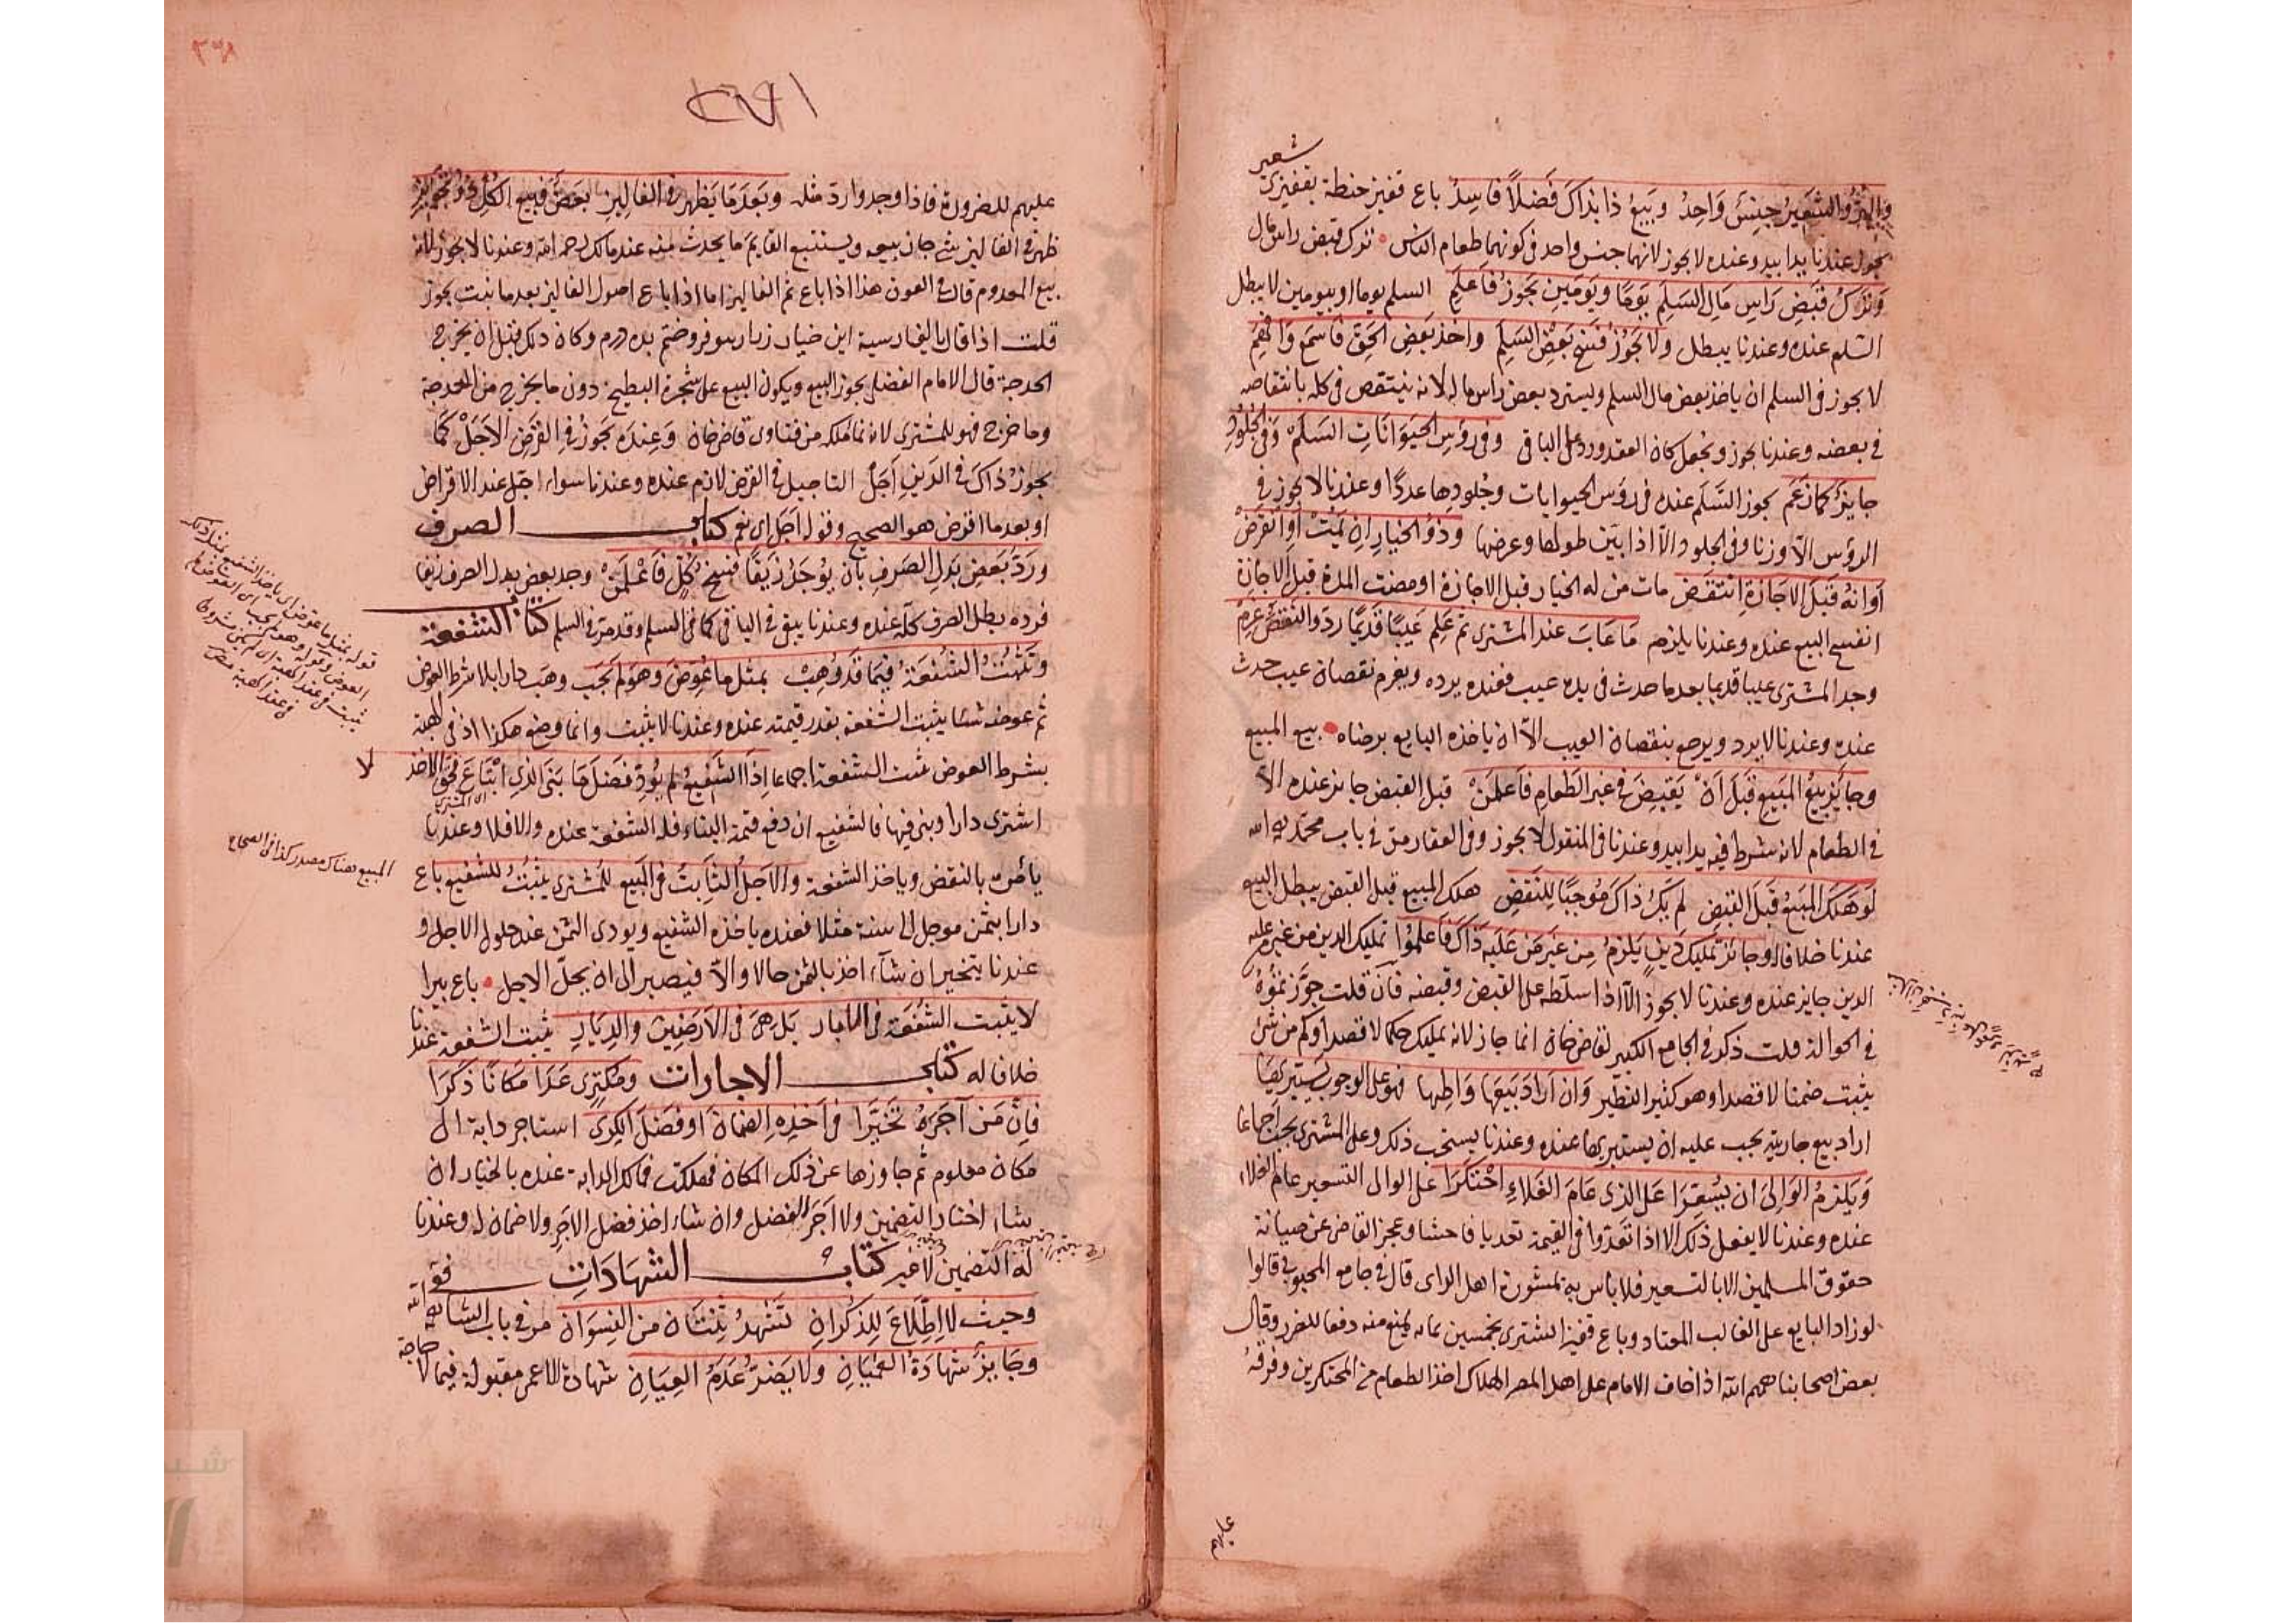 شعير
والبر والشَعِيرُ جِنْسٌ وَاحِدُ وَبَيعُ ذا بِذَاكَ فَضلًا فَاسِدُ باع قفيز حنطة بقفيزى
يجوز عندنا يدا بيد وعنده لا يجوز لانهما جنس واحد فى كونهما طعام الناس ترك قبض راس مال
وَتَركُ قَبضِ رَاسِ مَالِ السَلَمِ يَومًا وَيَومَينِ يَجُوزُ فَاعلَمِ السلم يوما او يومين لا يبطل
السلم عنده وعندنا يبطل ولا يَجُوزُ فَسخُ بَعضِ السَلَمِ واخذ بَعضِ الحَقِّ فَاسمَع وَافهَمِ
لا يجوز فى السلم ان ياخذ بعض مال السلم ويسترد بعض راس ماله لانه ينتقص فى كله بانتقاصه
فى بعضه وعندنا يجوز ويجعل كان العقد ورد على الباقى وفى رؤسِ الحَيَوَانَاتِ السَلَم وَفى الجُلُودِ
جايزٌ كمَا زَعَم يجوز السَّلَم عنده فى رؤس الحيوانات وجُلودها عددًا وعندنا لا يجوز فى
الرؤس الا وزنا وفى الجلود الا اذا بين طولها وعرضها وَذُو الخيارِ اِن يَمُت اَوِ انقَرَضْ
اَوَانُهُ قَبلَ الاجَازَةِ انتَقَض مات من له الخيار قبل الاجازة او مضت المدة قبل الاجازة
انفسخ البيع عنده وعندنا يلزم مَا عَابَ عند المشترى ثم عَلِم عَيبًا قديمًا ردّ والنَقصُ غرم
وجد المشترى عيبا قديما بعد ما حدث فى يده عيب فعنده يرده ويغرم نقصان عيب حدث
عنده وعندنا لا يرد ويرجع بنقصان العيب الا ان ياخذه البايع برضاه بيع المبيع
وجايزٌ بيعُ المَبيعِ قَبلَ اَن يَقبِضَ فى غير الطَعامِ فَاعلَمَنْ قبل القبض جايز عنده الا
فى الطعام لانه شرط فيه يدا بيد وعندنا فى المنقول لا يجوز وفى العقار مرّ فى باب محمّد رحمه الله
لَو هَلَكَ المَبيعُ قَبلَ القَبضِ لم يَكُ ذَاكَ مُوجِبًا لِلنَقضِ هلك المبيع قبل القبض يبطل البيع
عندنا خلافا له وجائز تَمليك دينٍ يلزمُ مِن غَير مَن عَلَيه ذاك فَاعلَمُوا تمليك الدين من غير من عليه
الدين جايز عنده وعندنا لا يجوز الا اذا سلّطه على القبض وقبضه فان قلت جوّزتموُهُ
فى الحوالة قلت ذكر فى الجامع الكبير لقاضى خان انما جاز لانه تمليك حكما لا قصدا وكم من شئ
يثبت ضمنا لا قصدا وهو كثير النظير وَاِن اَرَادَ بَيعَهَا وَاطِيها فهو على الوجوب يَستبريها
اراد بيع جاريته يجب عليه ان يستبريها عنده وعندنا يستحب ذلك وعلى المشترى يجب اجماعا
وَيَلزمُ الوالِى اَن يُسَعِّرَا عَلى الذى عَامَ الغَلاءِ احتَكَرَا على الوالى التسعير عام الغلاء
عنده وعندنا لا يفعل ذلك الا اذا تعدّوا فى القيمة تعديا فاحشا وعجز القاضى عن صيانة
حقوق المسلمين الا بالتسعير فلا باس به بمشورة اهل الراى قال فى جامع المحبوبى قالوا
لو زاد البايع على الغالب المعتاد وباع قفيزا اشترى بخمسين بمائة يمنع منه دفعا للضرر وقال
بعض اصحابنا رحمهم الله اذا خاف الامام على اهل المصر الهلاك اخذ الطعام من المحتكرين وفرقه
عليهم
عليهم للضرورة فاذا وجدوا ردّ مثله وبَعدَ مَا يَظهرُ فى الفاليز بَعضٌ فبيعُ الكُلّ ذو تجويز
ظهر فى الفاليز شئ جاز بيعه ويستتبع القايم ما يحدث منه عند مالك رحمه الله وعندنا لا يجوز لانه
بيع المعدوم قال فى العون هذا اذا باع ثمر الفاليز اما اذا باع اصول الفاليز بعد ما نبت يجوز
قلت اذا قال بالفارسية اين خيار زار بتو فروختم بده درم وكان ذلك قبل ان يخرج
الحدجة قال الامام الفضلى يجوز البيع ويكون البيع على شجرة البطيخ دون ما يخرج من الحدجة
وما خرج فهو للمشترى لانه نما ملكه من فتاوى قاضى خان وَعِندَه يَجُوزُ فى القَرضِ الاَجَلْ كَمَا
يجوز ذَاكَ فى الدَينِ اَجَلْ التاجيل فى القرض لازم عنده وعندنا سواء اجّل عند الاقراض
او بعد ما اقرض هو الصحيح وقوله اجل اى نعم كتاب الصرف
وَرَدُّ بَعضِ بَدلِ الصَرفِ بأن يُوجَدُ زَيفًا فَسخُ كُلٍّ فَاعْلَمَنْ وجد بعض بدل الصرف زيفا
فرده بطل الصرف كله عنده وعندنا يبقى فى الباقى كما فى السلم وقد مرّ فى السلم كتاب الشفعة
وَتَثبُتُ الشُفعَةُ فِيمَا قَد وُهِبْ بمثل ما عُوّضَ وهو لم يَجَب وهب دارا بلا شرط العوض
ثم عوضه شيئا يثبت الشفعة بقدر قيمته عنده وعندنا لا يثبت وانما وضع هكذا اذ فى الهبة
بشرط العوض تثبت الشفعة اجماعا اِذَا الشَفيعُ لم يُودِ فَضلَ مَا بَنَى الذى ابتَاعَ فحق الاخذ لا
اى المشترى
اشترى دارا وبنى فيها فالشفيع ان دفع قيمة البناء فله الشفعة عنده والا فلا وعندنا
يأمره بالنقض وياخذ الشفعة وَالاَجَلُ الثَابتُ فى المَبيع للمُشترى يثبُتُ للشفيع باع
دارا بثمن موجل الى سنة مثلا فعنده ياخذه الشفيع ويودى الثمن عند حلول الاجل و
عندنا يتخير ان شآء اخذ بالثمن حالا والا فيصبر الى ان يحلّ الاجل باع بيرا
لا يثبت الشُفعَة فى الابار بَل هى فى الاَرَضينَ والدِيَارِ يثبت الشفعة عندنا
خلافا له كتاب الاجارات وَمُكتَرِى عَدَا مَكانًا ذَكَرَا
فإن مَن آجَرَهُ تَخَيَّرَا فى اَخذِهِ الضمَانَ او فَضلَ الكِرَى استاجر دابة الى
مكان معلوم ثم جاوزها عن ذلك المكان فهلكت فمالك الدابة عنده بالخيار ان
شاء اختار التضمين ولا اجر للفضل وان شاء اخذ فضل الاجر ولا ضمان له وعندنا
له التضمين لا غير كتاب الشهادات
وحيث لا اطّلاعَ لِلذُكرَانِ تَشهدُ ثِنتَان من النِسوَان مرّ فى باب الشافعى رحمه الله
وجَايزٌ شَهادَةُ العُميَانِ ولا يَضرُّ عَدَمُ العِيَانِ شهادة الاعمى مقبولة فيما لا حاجة
المبيع هناك مصدر كذا فى الصحاح